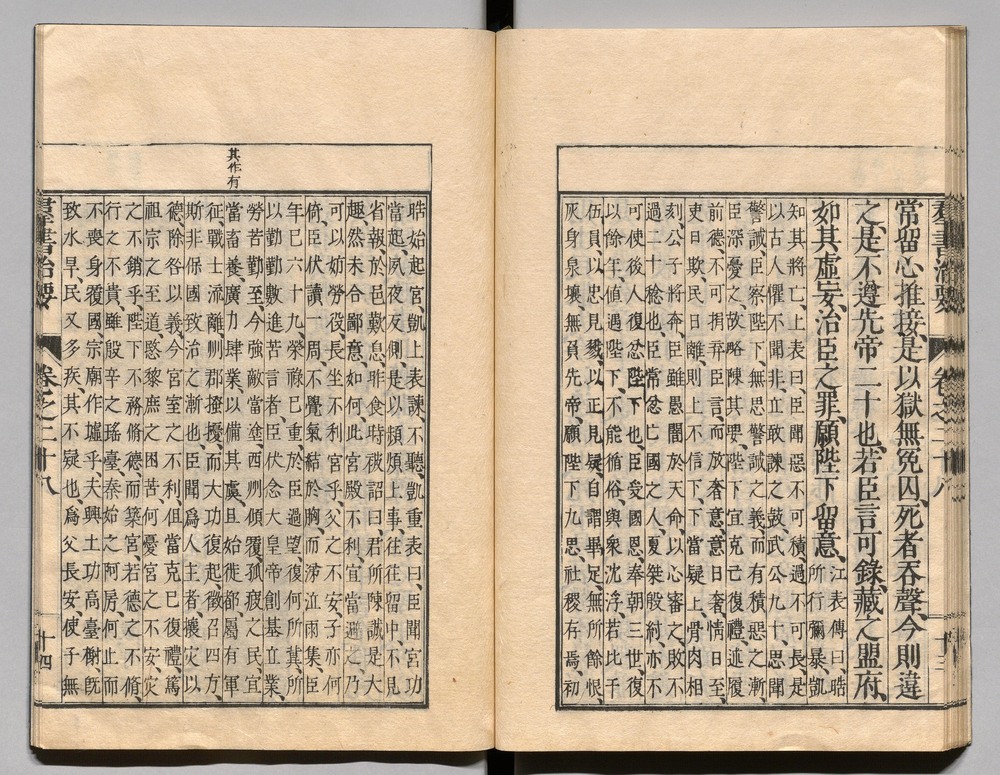 常留心推接、是以獄無冤囚、死者吞聲、今則違
之、是不遵先帝二十也、若臣言可錄、藏之盟府、
如其虛妄、治臣之罪、願陛下留意、
江表傳曰、晧
所行彌暴、凱
知其將亡、上表曰、臣聞惡不可積、過不可長、是
以古人懼不聞非、立敢諫之鼓、武公九十、思聞
警誡、臣察陛下、無思警誡之義、而有積惡之漸、
臣深憂之、故略陳其要、陛下宜克己復禮、述履
前德、不可捐弃臣言、而放奢意、意日奢、情日至、
吏日欺、民日離、則上不信下、下當疑上、骨肉相
刻、公子將奔、臣雖愚闇於天命、以心審之、敗不
過二十稔也、臣常忿亡國之人、夏桀殷紂、亦不
可使後人復忿陛下也、臣受國恩、奉朝三世、復
以餘年、値遇陛下、不能循俗、與衆沈浮、若比干
伍員、以忠見戮、以正見疑、自謂畢足、無所餘恨、
灰身泉壤、無負先帝、願陛下九思、社稷存焉、初
羣書治要
卷之二十八
十三
晧始起宮、凱上表諫、不聽、凱重表曰、臣聞宮功
當起、夙夜反側、是以頻頻上事、往往留中、不見
省報、於邑歎息、昨食時被詔曰、君所陳誠是大
趣、然未合鄙意、如何、此宮殿不利、宜當避之、乃
可以妨勞役、長坐不利宮乎、父之不安、子亦何
倚、臣伏讀一周、不覺氣結於胸、而涕泣雨集、臣
年巳六十九、榮祿巳重、於臣過望、復何所冀、所
以勤勤數進苦言者、臣伏念大皇帝創基立業、
勞苦勤至、今強敵當塗、西州傾覆、孤疲之民、宜
當畜養、廣力肆業、以備其虞、且始徙都、屬有軍
征、戰士流離、州郡搔擾、而大功復起、徵召四方、
斯非保國致治之漸也、臣聞爲人主者、攘災以
德、除咎以義、今宮室之不利、但當克己復禮、篤
祖宗之至道、愍黎庶之困苦、何憂宮之不安、災
之不銷乎、陛下不務脩德、而築宮、若德之不脩、
行之不貴、雖殷辛之瑤臺、秦始之阿房、何止而
不喪身覆國、宗廟作墟乎、夫興土功、高臺榭、旣
致水旱、民又多疾、其不疑也、爲父長安、使子無
其作有
羣書治要
卷之二十八
十四